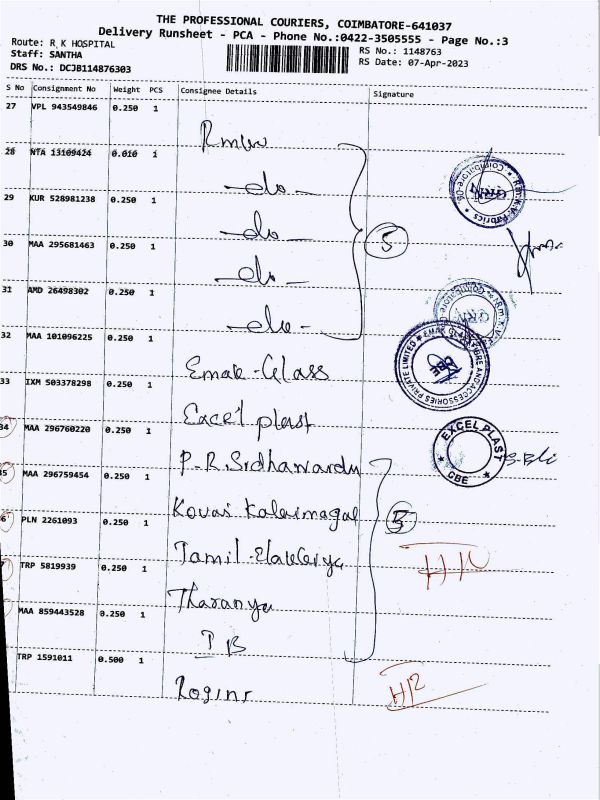 THE PROFESSIONAL COURIERS, COIMBATORE-641037
Delivery Runsheet - PCA - Phone No.:0422-3505555 - Page No.:3
Route: R K HOSPITAL
Staff: SANTHA
DRS No.: DCJB114876303
RS No.: 1148763
RS Date: 07-Apr-2023
S No Consignment No Weight PCS Consignee Details Signature
27 VPL 943549846 0.250 1
28 NTA 13109424 0.010 1
-do-
29 KUR 528981238 0.250 1
-do-
30 MAA 295681463 0.250 1
-do-
31 AMD 26498302 0.250 1
-do-
5
32 MAA 101096225 0.250 1
Emak-Glass
33 IXM 503378298 0.250 1
Excel plast
34 MAA 296760220 0.250 1
P.R.Sidhawardu
35 MAA 296759454 0.250 1
Kovai Kalaimagal
36 PLN 2261093 0.250 1
Tamil
5
TRP 5819939 0.250 1
Tharanya
MAA 859443528 0.250 1
TB
TRP 1591011 0.500 1
Rogini
Rm.K.V.Fabrics
Coimbatore-05
GRN
EMAK GLASS
AND ACCESSORIES PRIVATE LIMITED
CBE
EXCEL PLAST
CBE